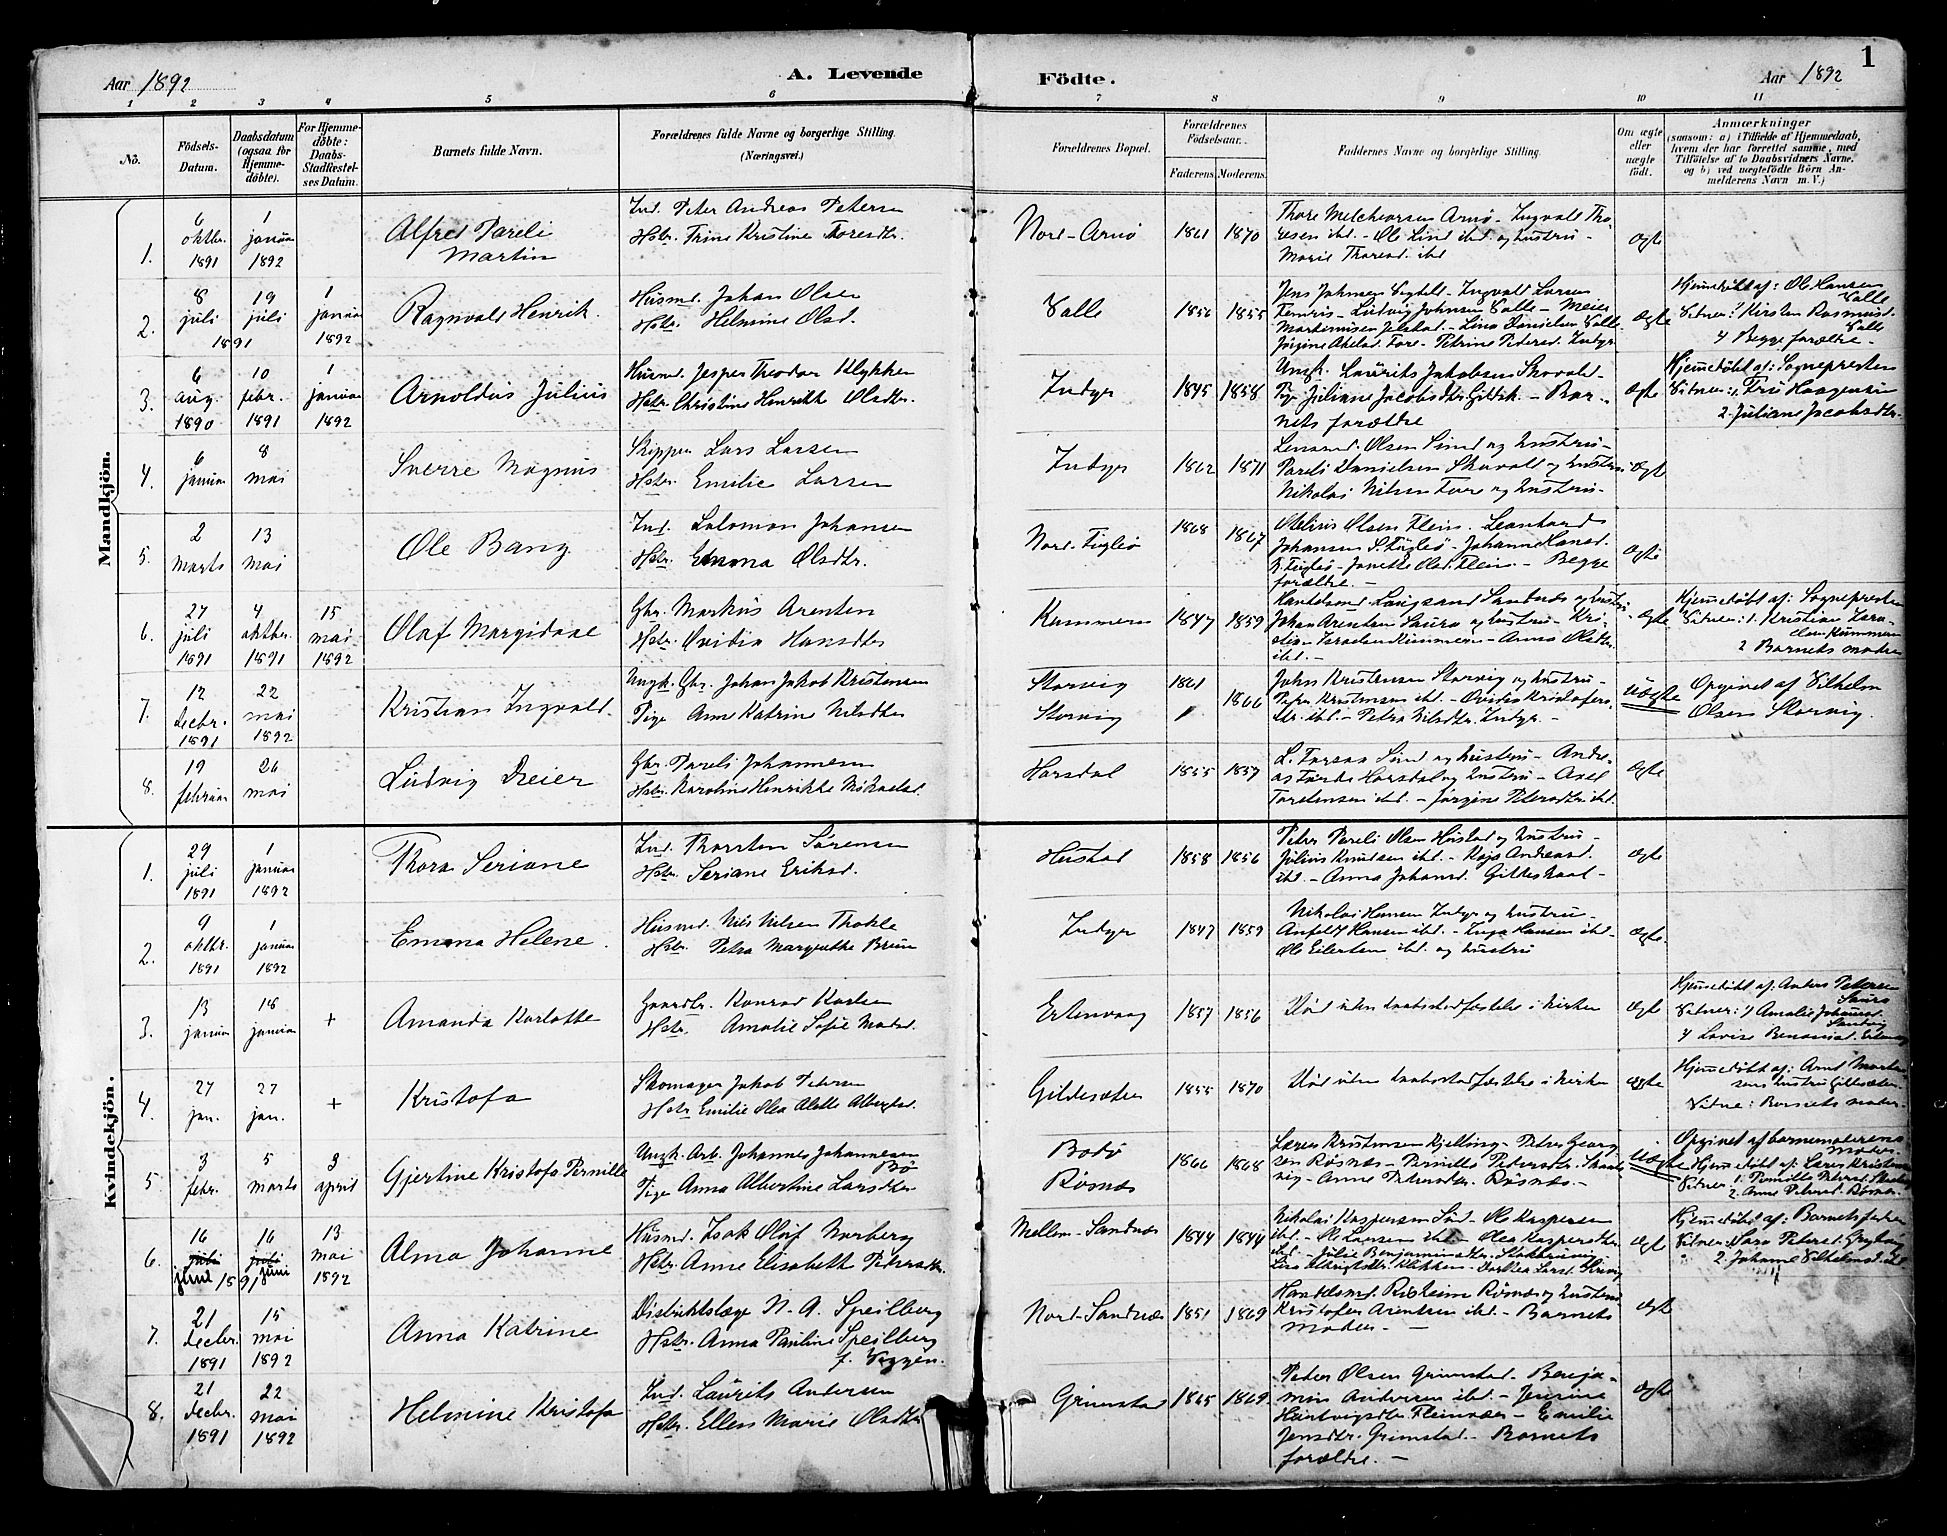 1
Aar 1892
A. Levende Födte.
Aar 1892
1 2 3 4 5 6 7 8 9 10 11
No.
Födsels-Datum.
Daabsdatum (ogsaa for Hjemme-döbte).
For Hjemme-döbte: Daabs-Stadfæstel-ses Datum.
Barnets fulde Navn.
Forældrenes fulde Navne og borgerlige Stilling. (Næringsvei.)
Forældrenes Bopæl.
Forældrenes Födselsaar.
Faderens. Moderens.
Faddernes Navne og borgerlige Stilling.
Om ægte eller uægte født.
Anmærkninger
(saasom: a) i Tilfælde af Hjemmedaab, hvem der har forrettet samme, med Tilföielse af to Daabsvidners Navne, og b) ved uægtefödte Börn Anmelderens Navn m. V.)
Mandkjön.
1. 6 oktbr. 1891 1 januar 1892
Alfred Pareli Martin
Ind. Peter Andreas Petersen
Hstr. Trine Kristine Toresdtr.
Nord-Arnø 1861 1870
Thore Melchiorsen Arnø - Ingvald Tho-
resen ibd. - Ole Lind ibd. og hustru -
Marie Thoresd. ibd
ægte
2. 8 juli 19 juli 1891 1 januar 1892
Ragnvald Henrik
Husmd. Johan Olsen
Hstr. Helmine Olsd.
Valle 1856 1855
Ludvig Johnsen Valle - Meier
Petrine Pedersd. Indyr
ægte
Hjemmedøbt af: Ole Hansen Valle
Vidner: 1 Kirsten Rasmusd. Valle
2 Begge forældre -
3. 6 aug. 1890 10 febr. 1891 1 januar 1892
Arnoldus Julius
Husmd. Jesper Theodor Klykken
Hstr. Christine Henrikke Olsdtr.
Indyr 1845 1858
Ungk. Laurits Jakobsen Skavald -
Pige Juliane Jacobsdtr Gildsk. - Bar-
nets forældre
ægte
Hjemmedøbt af: Sognepresten
Vidner: 1. Fru Haagensen
2. Juliane Jacobsdtr.
4. 6 januar 8 mai
Sverre Magnus
Skipper Lars Larsen
Hstr. Emilie Larsen
Indyr 1862 1871
Olsen Sund og hustru -
Pareli Danielsen Skavald og hustru
Nikolai Nilsen Fore og hustru -
ægte
5. 2 marts 13 mai
Ole Bang
Ind. Salomon Johansen
Hstr. Emma Olsdtr.
Nord-Fugløø 1868 1867
Otelius Olsen Flein. Leonhard
Johansen S. Fugløø - Johanne Hansd.
Flein - Begge
forældre -
ægte
6. 27 juli 1891 4 oktbr. 1891 15 mai 1892
Olaf Margidase
Gbr. Markus Arentsen
Hstr. Ovidia Hansdtr
Kummern 1847 1859
Johan Arentsen Saura og hustru - Kri-
stian Israelsen Kummern - Anna Olsdtr
ibd. -
ægte
Hjemmedøbt af: Sognepresten
Vidner: 1. Kristian Isra-
elsen Kummern
2 Barnets moder
7. 12 decbr. 1891 22 mai 1892
Kristian Ingvald.
Ungk. Gbr. Johan Jakob Kristensen
Pige Anne Katrine Nilsdtr
Storvig Storvig 1861 1866
Johs Kristensen Storvig og hustru -
Peter Kristensen ibd. - Ovidia Kristofers-
dtr. ibd. - Petra Nilsdtr. Indyr. -
Uægte
Opgivet af Vilhelm
Olsen Storvig.
8. 19 februar 26 mai
Ludvig Dreier
Gbr. Pareli Johannesen
Hstr. Karoline Henrikke Mikaelsd.
Horsdal 1855 1857
og hustru - Andre-
as Horsdal og hustru - Axel
Torstensen ibd. - Jørgine Petersdtr ibd.
ægte
Kvindekjön.
1. 29 juli 1891 1 januar 1892
Thora Seriane
Ind. Thorsten Sørensen
Hstr. Seriane Eriksd.
Hustad 1858 1856
Peter Pareli Olsen Hustad og hustru -
Julius Knudsen ibd. - Kaja Andreasd.
ibd. - Anna Johansd. Gildeskaal -
ægte
2. 9 oktbr. 1891 1 januar 1892
Emma Helene.
Husmd. Nils Nilsen Thokle
Hstr. Petra Margrethe Bruun
Indyr 1847 1859
Nikolai Hansen Indyr og hustru -
Hansen ibd. - Inga Hansen ibd -
Ole Eilertsen ibd. og hustru
ægte.
3. 13 januar 18 januar +
Amanda Karlotte
Gaardbr. Konrad Karlsen
Hstr. Amalie Sofie Matsd.
Ertenvaag 1857 1856
Død uden daabsstadfæstelse i kirken
ægte
Hjemmedøbt af: Anders Petersen Saura
Vidner: 1 Amalie Johansd. Sandvig
2 Lovise Benoniad. Ertenvaag
4. 27 jan. 27 jan. +
Kristofa
Skomager Jakob Petersen
Hstr. Emilie Olea Alette Albrigtsd.
Gildesæter 1855 1870
Død uden daabsstadfæstelse i kirken
ægte
Hjemmedøbt af: Arnt Morten-
sens hustru Gildesæter.
Vidne: Barnets moder.
5. 3 febr. 5 marts 3 april
Gjertine Kristofa Pernille
Ungk. Arb. Johannes Johannesen Bø
Pige Anna Albertine Larsdtr
Bodø Røsnæs 1866 1868
Lars Kristensen Kjelling - Peter Georg-
sen Røsnæs - Pernille Pedersdtr. Skaa-
vig - Anne Petersdtr. Røsnæs. -
Uægte
Opgivet af barnemoderens moder.
Hjemmedøbt af: Lars Kristensen
Vidner: 1. Pernille Peters.
2. Anne Petersd. Røsnæs.
6. 16 juli juni 16 juli juni 1891 13 mai 1892
Alma Johanne
Husmd. Isak Olaf Norberg
Hstr. Anne Elisabeth Pedersdtr.
Mellem-Sandnæs 1844 1844
Nikolai Kaspersen Sund - Ole Kaspersen
ibd. - Ole Larsen ibd. - Olea Kaspersdtr
ibd. - Julie Benjaminsdtr.
ægte
Hjemmedøbt af: Barnets fader
Vidner: 1 Sara Petersd.
2. Johanne Vilhelmsd. ibd
7. 21 decbr. 1891 15 mai 1892
Anna Katrine
Distriktslæge N. A. Speilberg
Hstr. Anna Pauline Speilberg
f. Viggen.
Nord-Sandnæs 1851 1869
Handelsmd. Røsnæs og hustru
Kristofer Arentsen ibd. - Barnets
Moder. -
ægte
8. 21 decbr. 1891 22 mai 1892
Helmine Kristofa
Ind. Laurits Andersen
Hstr. Ellen Marie Olsdtr
Grimstad 1865 1869
Peder Olsen Grimstad. Benja-
min Andersen ibd. - Jensine
Hartvigsdtr. Fleinvær - Emilie
Jensdtr. Grimstad - Barnets
forældre. -
ægte